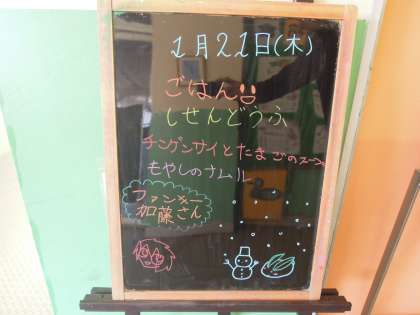 1月21日(木)
ごはん
しせんどうふ
チンゲンサイとたまごのスープ
もやしのナムル
ファンキー
加藤さん